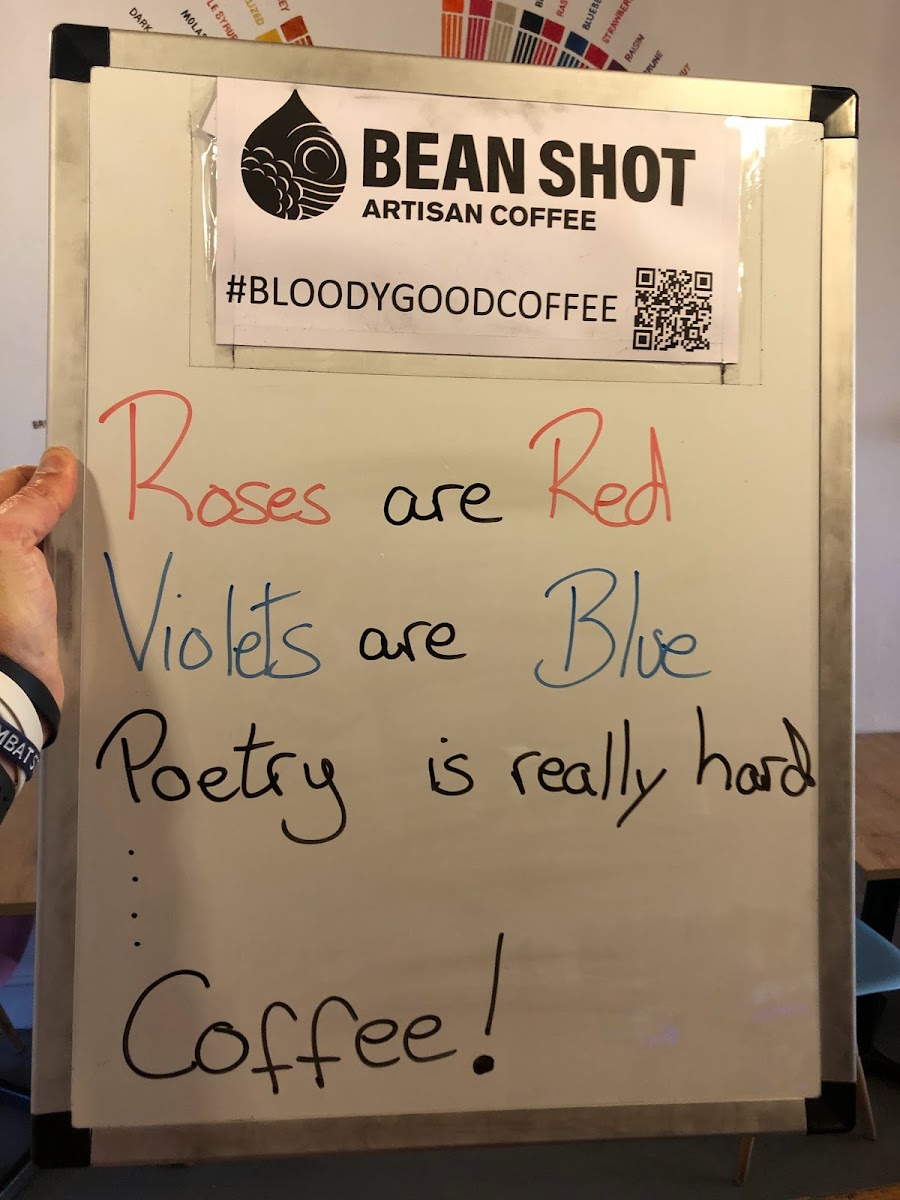 DARK
MOLAS
LE SYRU
LIZED
EY
RAS
BLUEBE
STRAWBER
RAISIN
PRUNE
BEAN SHOT
ARTISAN COFFEE
#BLOODYGOODCOFFEE
Roses are Red
Violets are Blue
Poetry is really hard
....
Coffee!
MBATS